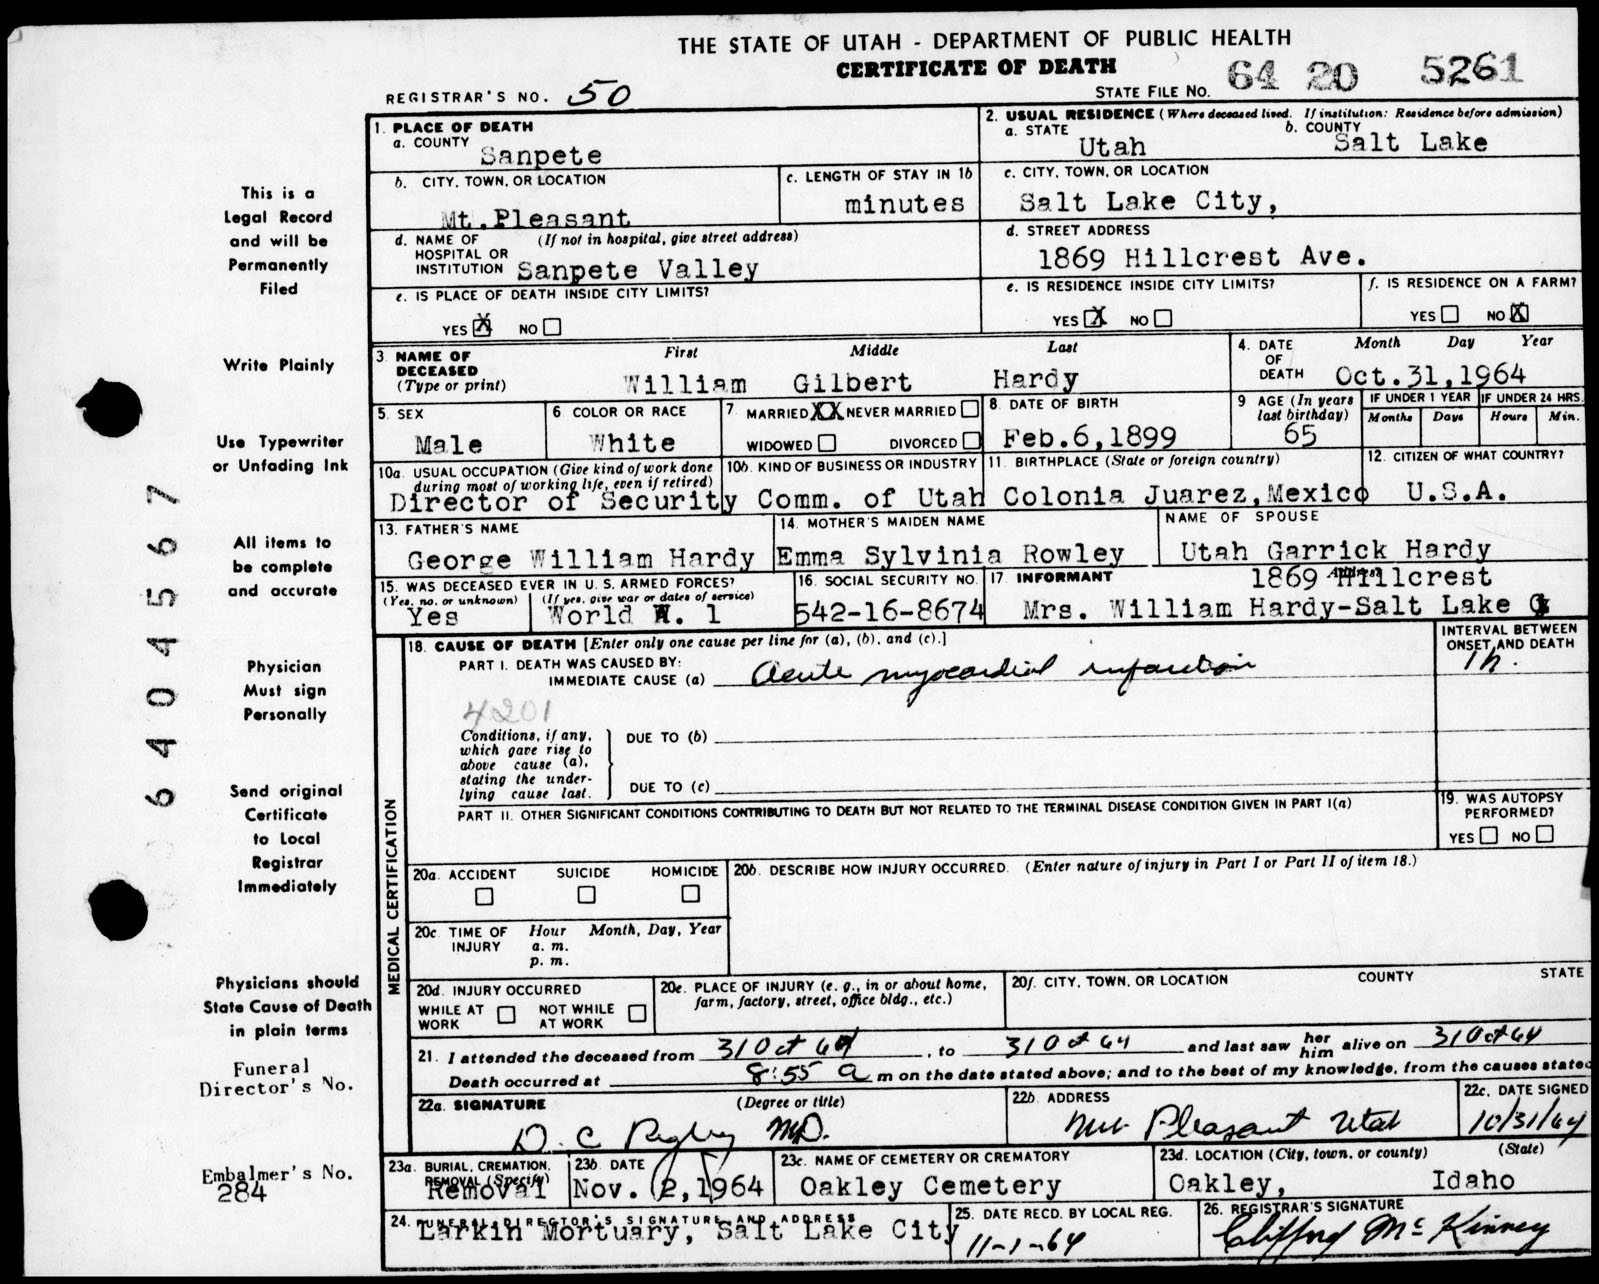 THE STATE OF UTAH - DEPARTMENT OF PUBLIC HEALTH
CERTIFICATE OF DEATH
REGISTRAR'S NO. 50
STATE FILE NO. 64 20 5261
1. PLACE OF DEATH
a. COUNTY Sanpete
2. USUAL RESIDENCE (Where deceased lived. If institution: Residence before admission)
a. STATE Utah
b. COUNTY Salt Lake
b. CITY, TOWN, OR LOCATION Mt.Pleasant
c. LENGTH OF STAY IN 1b minutes
c. CITY, TOWN, OR LOCATION
Salt Lake City,
d. NAME OF HOSPITAL OR INSTITUTION (If not in hospital, give street address)
Sanpete Valley
d. STREET ADDRESS
1869 Hillcrest Ave.
e. IS PLACE OF DEATH INSIDE CITY LIMITS?
YES X NO
e. IS RESIDENCE INSIDE CITY LIMITS?
YES X NO
f. IS RESIDENCE ON A FARM?
YES NO X
3. NAME OF DECEASED (Type or print)
First Middle Last
William Gilbert Hardy
4. DATE OF DEATH
Month Day Year
Oct.31,1964
5. SEX
Male
6. COLOR OR RACE
White
7. MARRIED XX NEVER MARRIED
WIDOWED DIVORCED
8. DATE OF BIRTH
Feb.6,1899
9. AGE (In years last birthday)
65
IF UNDER 1 YEAR
Months Days
IF UNDER 24 HRS.
Hours Min.
10a. USUAL OCCUPATION (Give kind of work done during most of working life, even if retired)
10b. KIND OF BUSINESS OR INDUSTRY
Director of Security Comm. of Utah
11. BIRTHPLACE (State or foreign country)
Colonia Juarez,Mexico
12. CITIZEN OF WHAT COUNTRY?
U.S.A.
13. FATHER'S NAME
George William Hardy
14. MOTHER'S MAIDEN NAME
Emma Sylvinia Rowley
NAME OF SPOUSE
Utah Garrick Hardy
15. WAS DECEASED EVER IN U.S. ARMED FORCES?
(Yes, no, or unknown) (If yes, give war or dates of service)
Yes World W. 1
16. SOCIAL SECURITY NO.
542-16-8674
17. INFORMANT Address
1869 Hillcrest
Mrs. William Hardy-Salt Lake
MEDICAL CERTIFICATION
18. CAUSE OF DEATH [Enter only one cause per line for (a), (b), and (c).]
INTERVAL BETWEEN ONSET AND DEATH
PART I. DEATH WAS CAUSED BY:
IMMEDIATE CAUSE (a) Acute myocardial infarction 1 h.
4201
Conditions, if any, which gave rise to above cause (a), stating the underlying cause last.
DUE TO (b)
DUE TO (c)
PART II. OTHER SIGNIFICANT CONDITIONS CONTRIBUTING TO DEATH BUT NOT RELATED TO THE TERMINAL DISEASE CONDITION GIVEN IN PART I(a)
19. WAS AUTOPSY PERFORMED?
YES NO
20a. ACCIDENT SUICIDE HOMICIDE
20b. DESCRIBE HOW INJURY OCCURRED. (Enter nature of injury in Part I or Part II of item 18.)
20c. TIME OF INJURY Hour Month, Day, Year
a. m.
p. m.
20d. INJURY OCCURRED
WHILE AT WORK NOT WHILE AT WORK
20e. PLACE OF INJURY (e. g., in or about home, farm, factory, street, office bldg., etc.)
20f. CITY, TOWN, OR LOCATION COUNTY STATE
21. I attended the deceased from 31 Oct 64, to 31 Oct 64 and last saw her him alive on 31 Oct 64
Death occurred at 8:55 a m on the date stated above; and to the best of my knowledge, from the causes stated
22a. SIGNATURE (Degree or title)
D. C. Rigby M.D.
22b. ADDRESS
Mt. Pleasant Utah
22c. DATE SIGNED
10/31/64
23a. BURIAL, CREMATION, REMOVAL (Specify)
Removal
23b. DATE
Nov. 2,1964
23c. NAME OF CEMETERY OR CREMATORY
Oakley Cemetery
23d. LOCATION (City, town, or county) (State)
Oakley, Idaho
24. FUNERAL DIRECTOR'S SIGNATURE AND ADDRESS
Larkin Mortuary, Salt Lake City
25. DATE RECD. BY LOCAL REG.
11-1-64
26. REGISTRAR'S SIGNATURE
Clifford McKinney
This is a
Legal Record
and will be
Permanently
Filed
Write Plainly
Use Typewriter
or Unfading Ink
All items to
be complete
and accurate
Physician
Must sign
Personally
Send original
Certificate
to Local
Registrar
Immediately
Physicians should
State Cause of Death
in plain terms
Funeral
Director's No.
Embalmer's No.
284
6404567